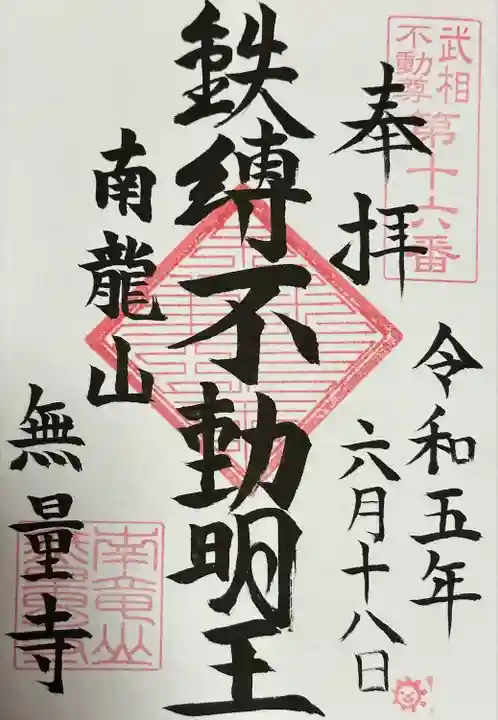 武相
不動尊
第十六番
奉拝
令和五年
六月十八日
鉄縛不動明王
南龍山
無量寺
南竜山